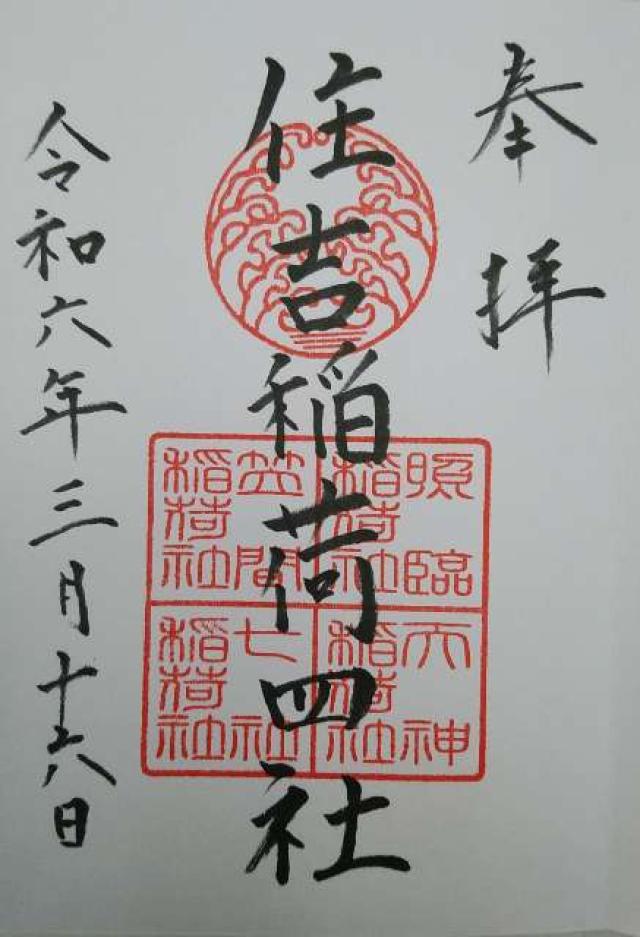 奉拝
住吉稲荷四社
照臨
稲荷社
笠間
稲荷社
稲荷社
七社
稲荷社
令和六年三月十六日